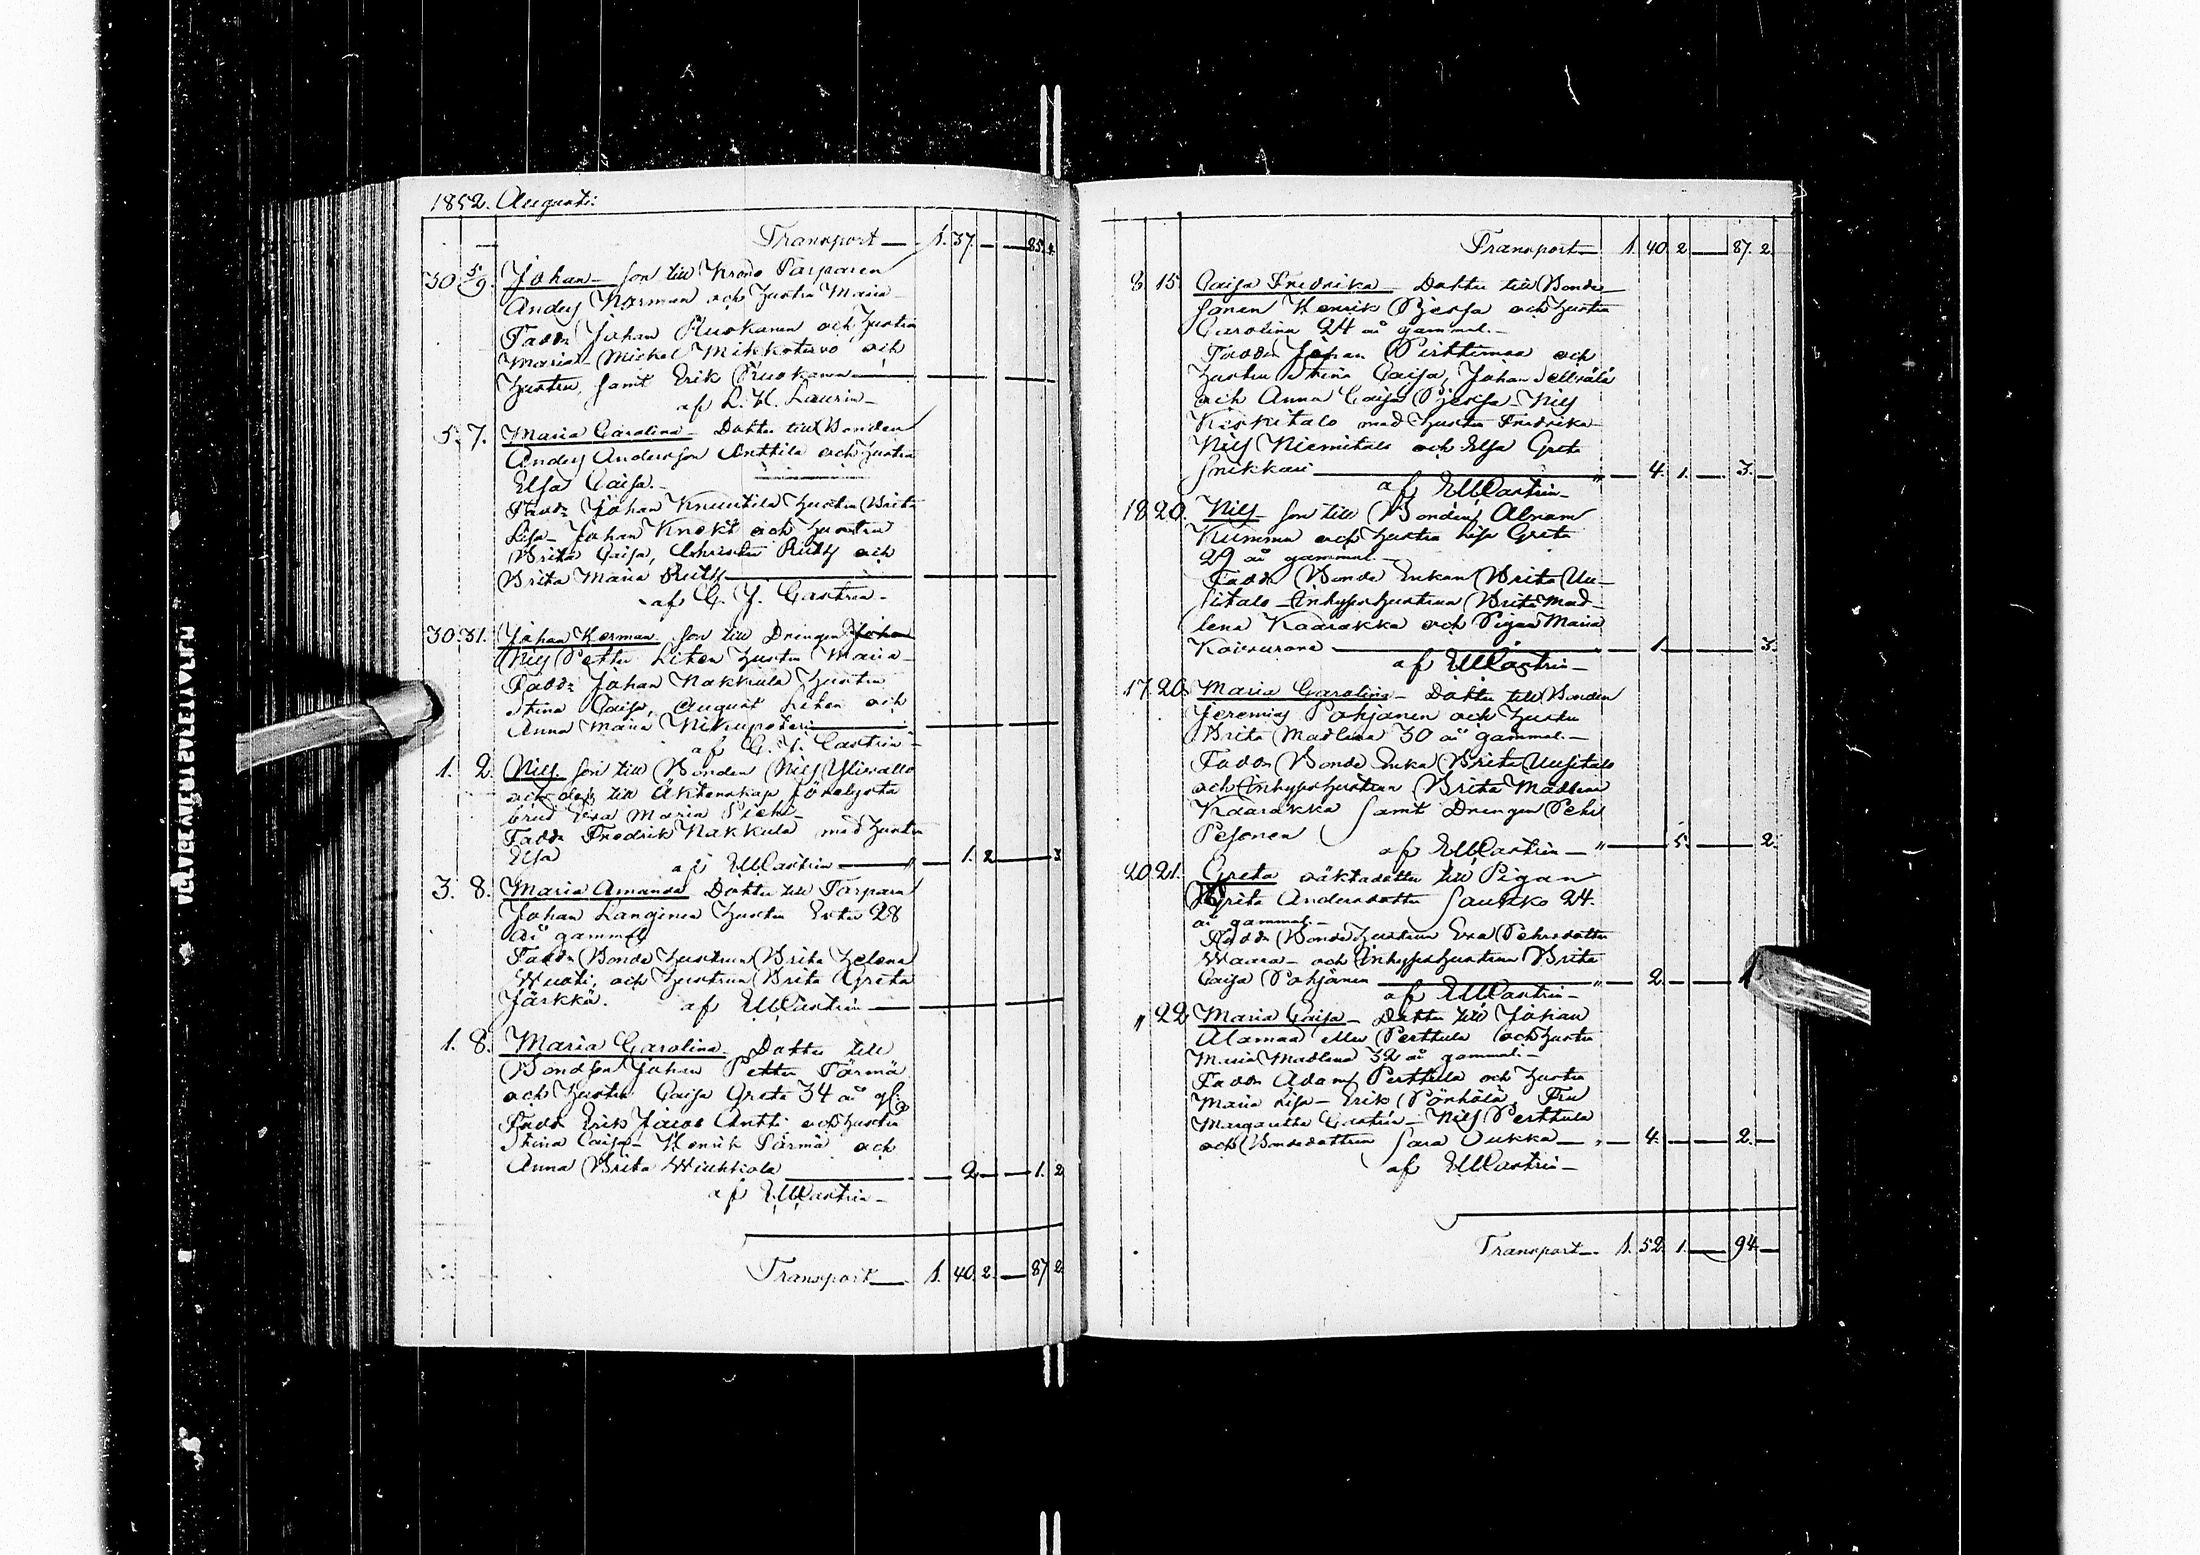 1852. Augusti:
Transport — 1. 37. — — 85. 2
30 5/9 Johan — son till Krono Torparen
Anders Norman och Hustru Maria
Fadd: Johan Ruokanen och Hustru
Maria — Michel Mikkoturvo och
Hustru, samt Erik Ruokanen —
af L. H. Laurin —
5. 7. Maria Carolina — Dotter till Bonden
Anders Andersson Anttila och Hustru
Elsa Caisa. —
Fadd: Johan Knuutila Hustru Brita
Lisa — Johan Knekt och Hustru
Brita Caisa, Christer Ruth och
Brita Maria Ruth —
af C. J. Castrén —
30. 31. Johan Herman son till Drengen Johan
Nils Petter Liten Hustru Maria —
Fadd: Johan Nakkula Hustru
Stina Caisa, August Liten och
Anna Maria Nikupeteri —
af C. J. Castrén —
1. 2. Nils son till Bonden Nils
och dess till Äktenskap
brud Eva Maria
Fadd: Fredrik Nakkula med Hustru
Elsa af EMCastrén — " — 1. 2 — 3
3. 8. Maria Amanda Dotter till Torparn
Johan Langinen Hustru 28
år gammal
Fadd: Bonde Hustrun Brita Helena
Huoti, och Hustrun Brita Greta
Järkkä. af EMCastrén —
1. 8. Maria Carolina Dotter till
Bondson Johan Petter Pärmä
och Hustru Caisa Greta 34 år gl:
Fadd: Erik Jacob Antti och Hustru
Stina Caisa — Henrik Pärmä och
Anna Brita Wiukkola — 2 — 1. 2
af EMCastrén —
Transport — 1. 40. 2 — 87 2
Transport — 1. 40 2 — 87. 2.
8. 15. Caisa Fredrika — Dotter till Bonde
sonen Henrik och Hustru
Carolina 24 år gammal. —
Fadd: Johan Pirttimaa och
Hustru Stina Caisa, Johan
och Anna Caisa — Nils
Kiskitalo med Hustru Fredrika
Nils Niemitalo och Elsa Greta
Snikkari — " — 4. 1. — 3. —
af EMCastrén —
18 20. Nils — son till Bonden Abram
Kumma och Hustru Lisa Greta
29 år gammal —
Fadd: Bonde Enkan Brita Uu-
sitalo — Inhyses Hustrun Brita Mad-
lena Kaarakka och Pigan Maria
Koivurana — 1 — 3.
af EMCastrén —
17. 20. Maria Carolina — Dotter till Bonden
Jeremias Pohjanen och Hustru
Brita Madlena 30 år gammal. —
Fadd: Bonde Enka Brita Uusitalo
och Inhyses Hustrun Brita Madlena
Kaarakka samt Drengen Pehr
Pesonen af EMCastrén — " — 5. — 2.
20 21. Greta oäktadotter till Pigan
Brita Andersdotter Sautko 24
år gammal. —
Fadd: Bonde Hustrun Eva Pehrsdotter
Waara — och Inhyses Hustrun Brita
Caisa Pohjanen — " — 2 — 1
af EMCastrén —
" 22 Maria Caisa — Dotter till Johan
Alamaa eller Perttula och Hustru
Maria Madlena 32 år gammal —
Fadd: Adam Perttula och Hustru
Maria Lisa — Erik Pörhölä, Fru
Margaretha Castrén — Nils Perttula
och Bondedottren Sara Oukka — " — 4. — 2. —
af EMCastrén —
Transport — 1. 52. 1. — 94. —